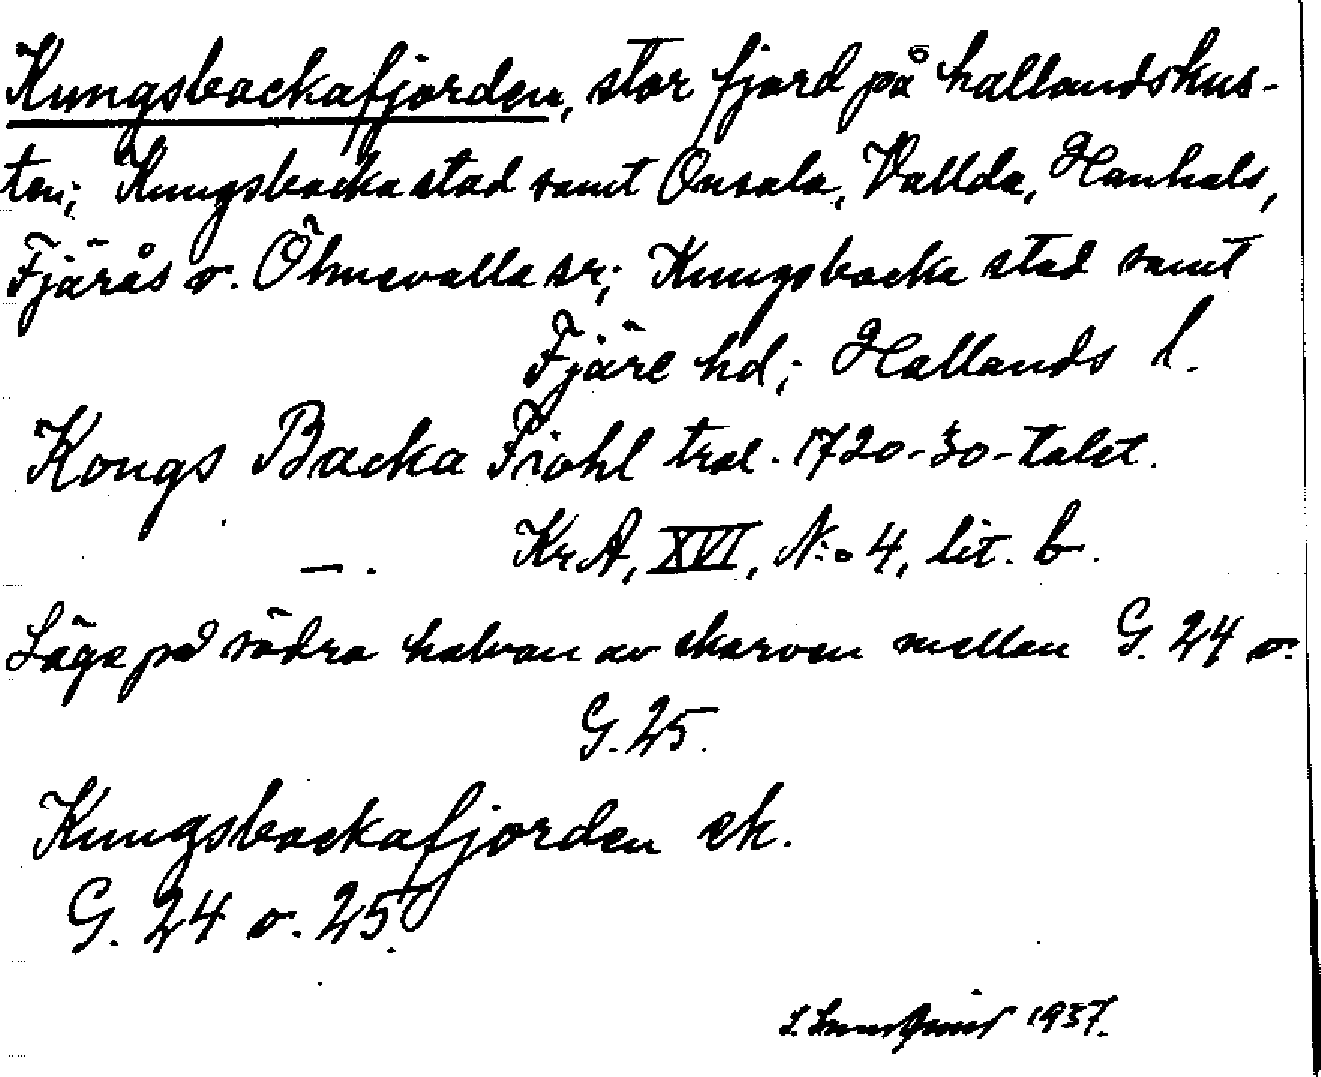 Kungsbackafjorden, stor fjord på hallandskus-
ten; Kungsbacka stad samt Onsala, Vallda, Hanhals,
Fjärås o. Ölmevalla sr; Kungsbacka stad samt
Fjäre hd; Hallands l.
Kongs Backa Fiohl tral. 1720-30-talet.
—. KrA, XVI, N:o 4, lit. b.
Läge på södra halvan av skarven mellan G. 24 o.
G. 25.
Kungsbackafjorden ek.
G. 24 o. 25.
1937.